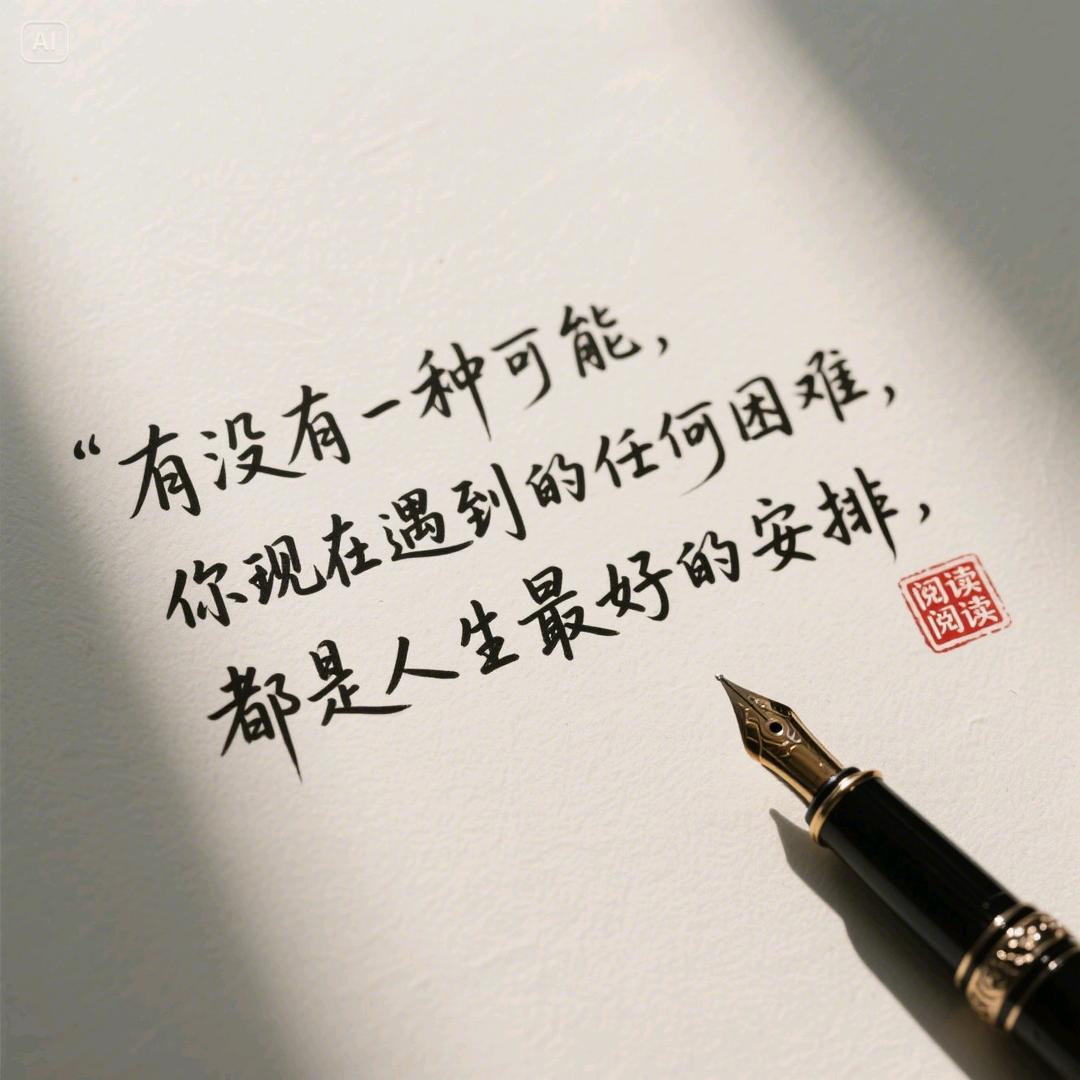 AI
“有没有一种可能，
你现在遇到的任何困难，
都是人生最好的安排，
阅读
阅读